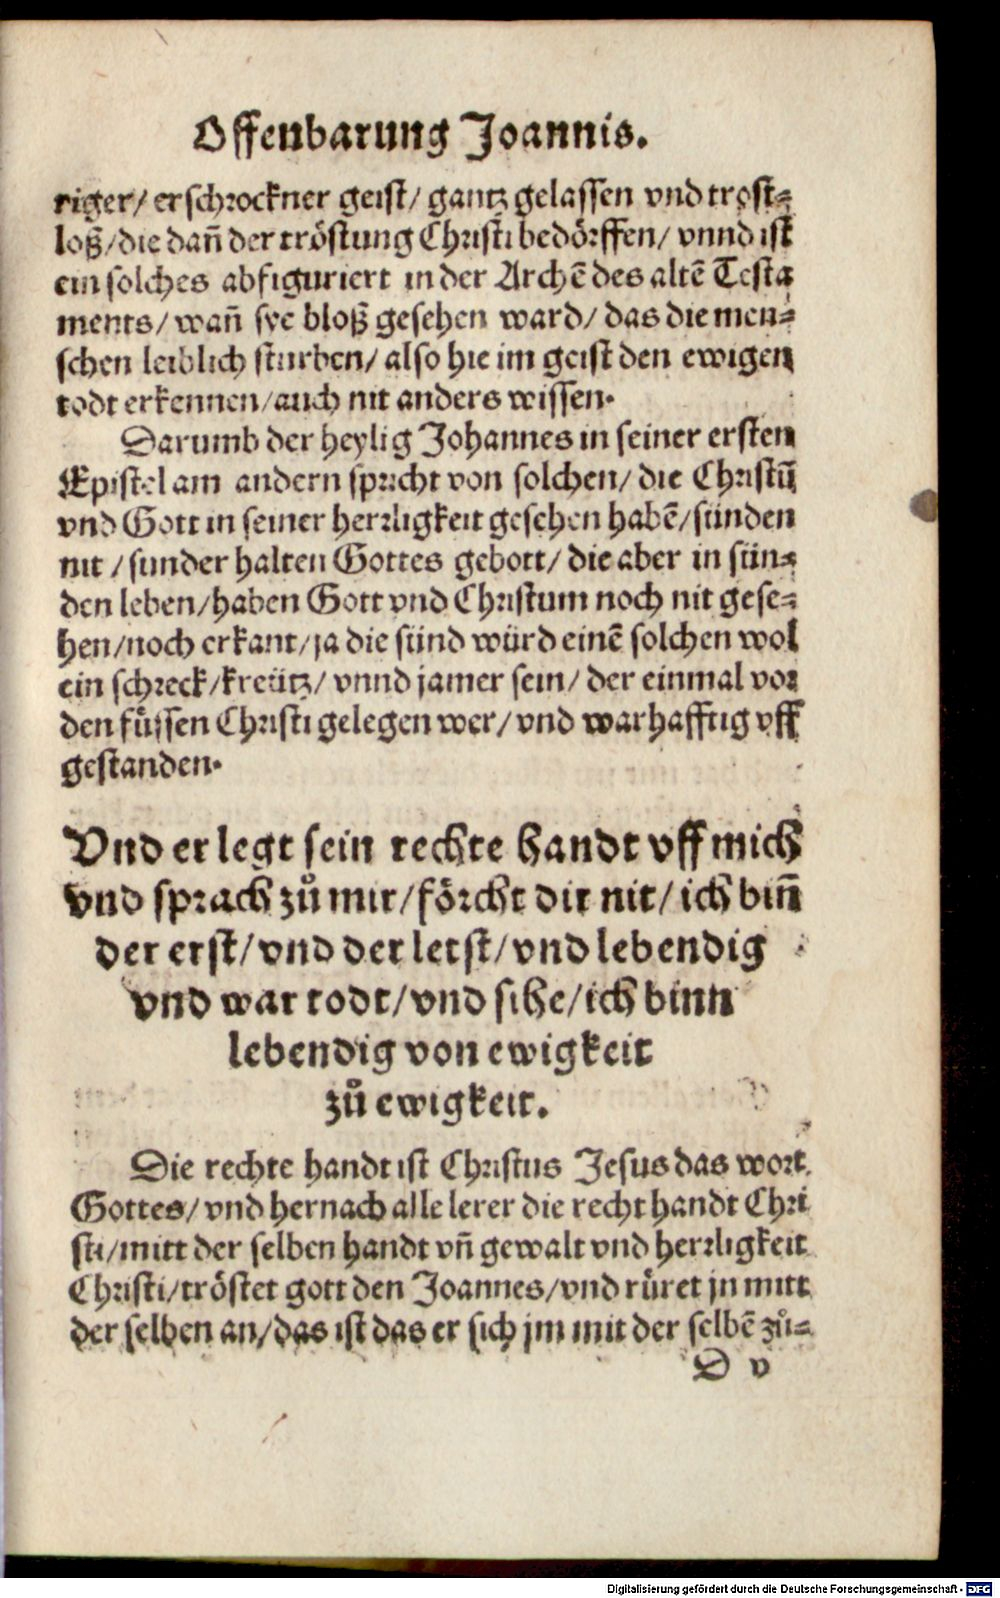 Offenbarung Joannis.
riger/ erschrockner geist/ gantz gelassen vnd trost-
loß/ die dañ der tröstung Christi bedörffen/ vnnd ist
ein solches abfiguriert in der Archē des altē Testa
ments/ wañ sye bloß gesehen ward/ das die men-
schen leiblich sturben/ also hie im geist den ewigen
todt erkennen/ auch nit anders wissen.
Darumb der heylig Johannes in seiner ersten
Epistel am andern spricht von solchen/ die Christū
vnd Gott in seiner herrligkeit gesehen habē/ sünden
nit / sunder halten Gottes gebott/ die aber in sün-
den leben/ haben Gott vnd Christum noch nit gese-
hen/ noch erkant/ ja die sünd würd einē solchen wol
ein schreck/ kreütz/ vnnd jamer sein/ der einmal vor
den füssen Christi gelegen wer/ vnd warhafftig vff
gestanden.
Vnd er legt sein rechte handt vff mich
vnd sprach zů mir/ förcht dir nit/ ich biñ
der erst/ vnd der letst/ vnd lebendig
vnd war todt/ vnd sihe/ ich binn
lebendig von ewigkeit
zů ewigkeit.
Die rechte handt ist Christus Jesus das wort
Gottes/ vnd hernach alle lerer die recht handt Chri
sti/ mitt der selben handt vñ gewalt vnd herrligkeit
Christi/ tröstet gott den Joannes/ vnd rüret jn mitt
der selben an/ das ist das er sich jm mit der selbē zů-
D v
Digitalisierung gefördert durch die Deutsche Forschungsgemeinschaft - DFG